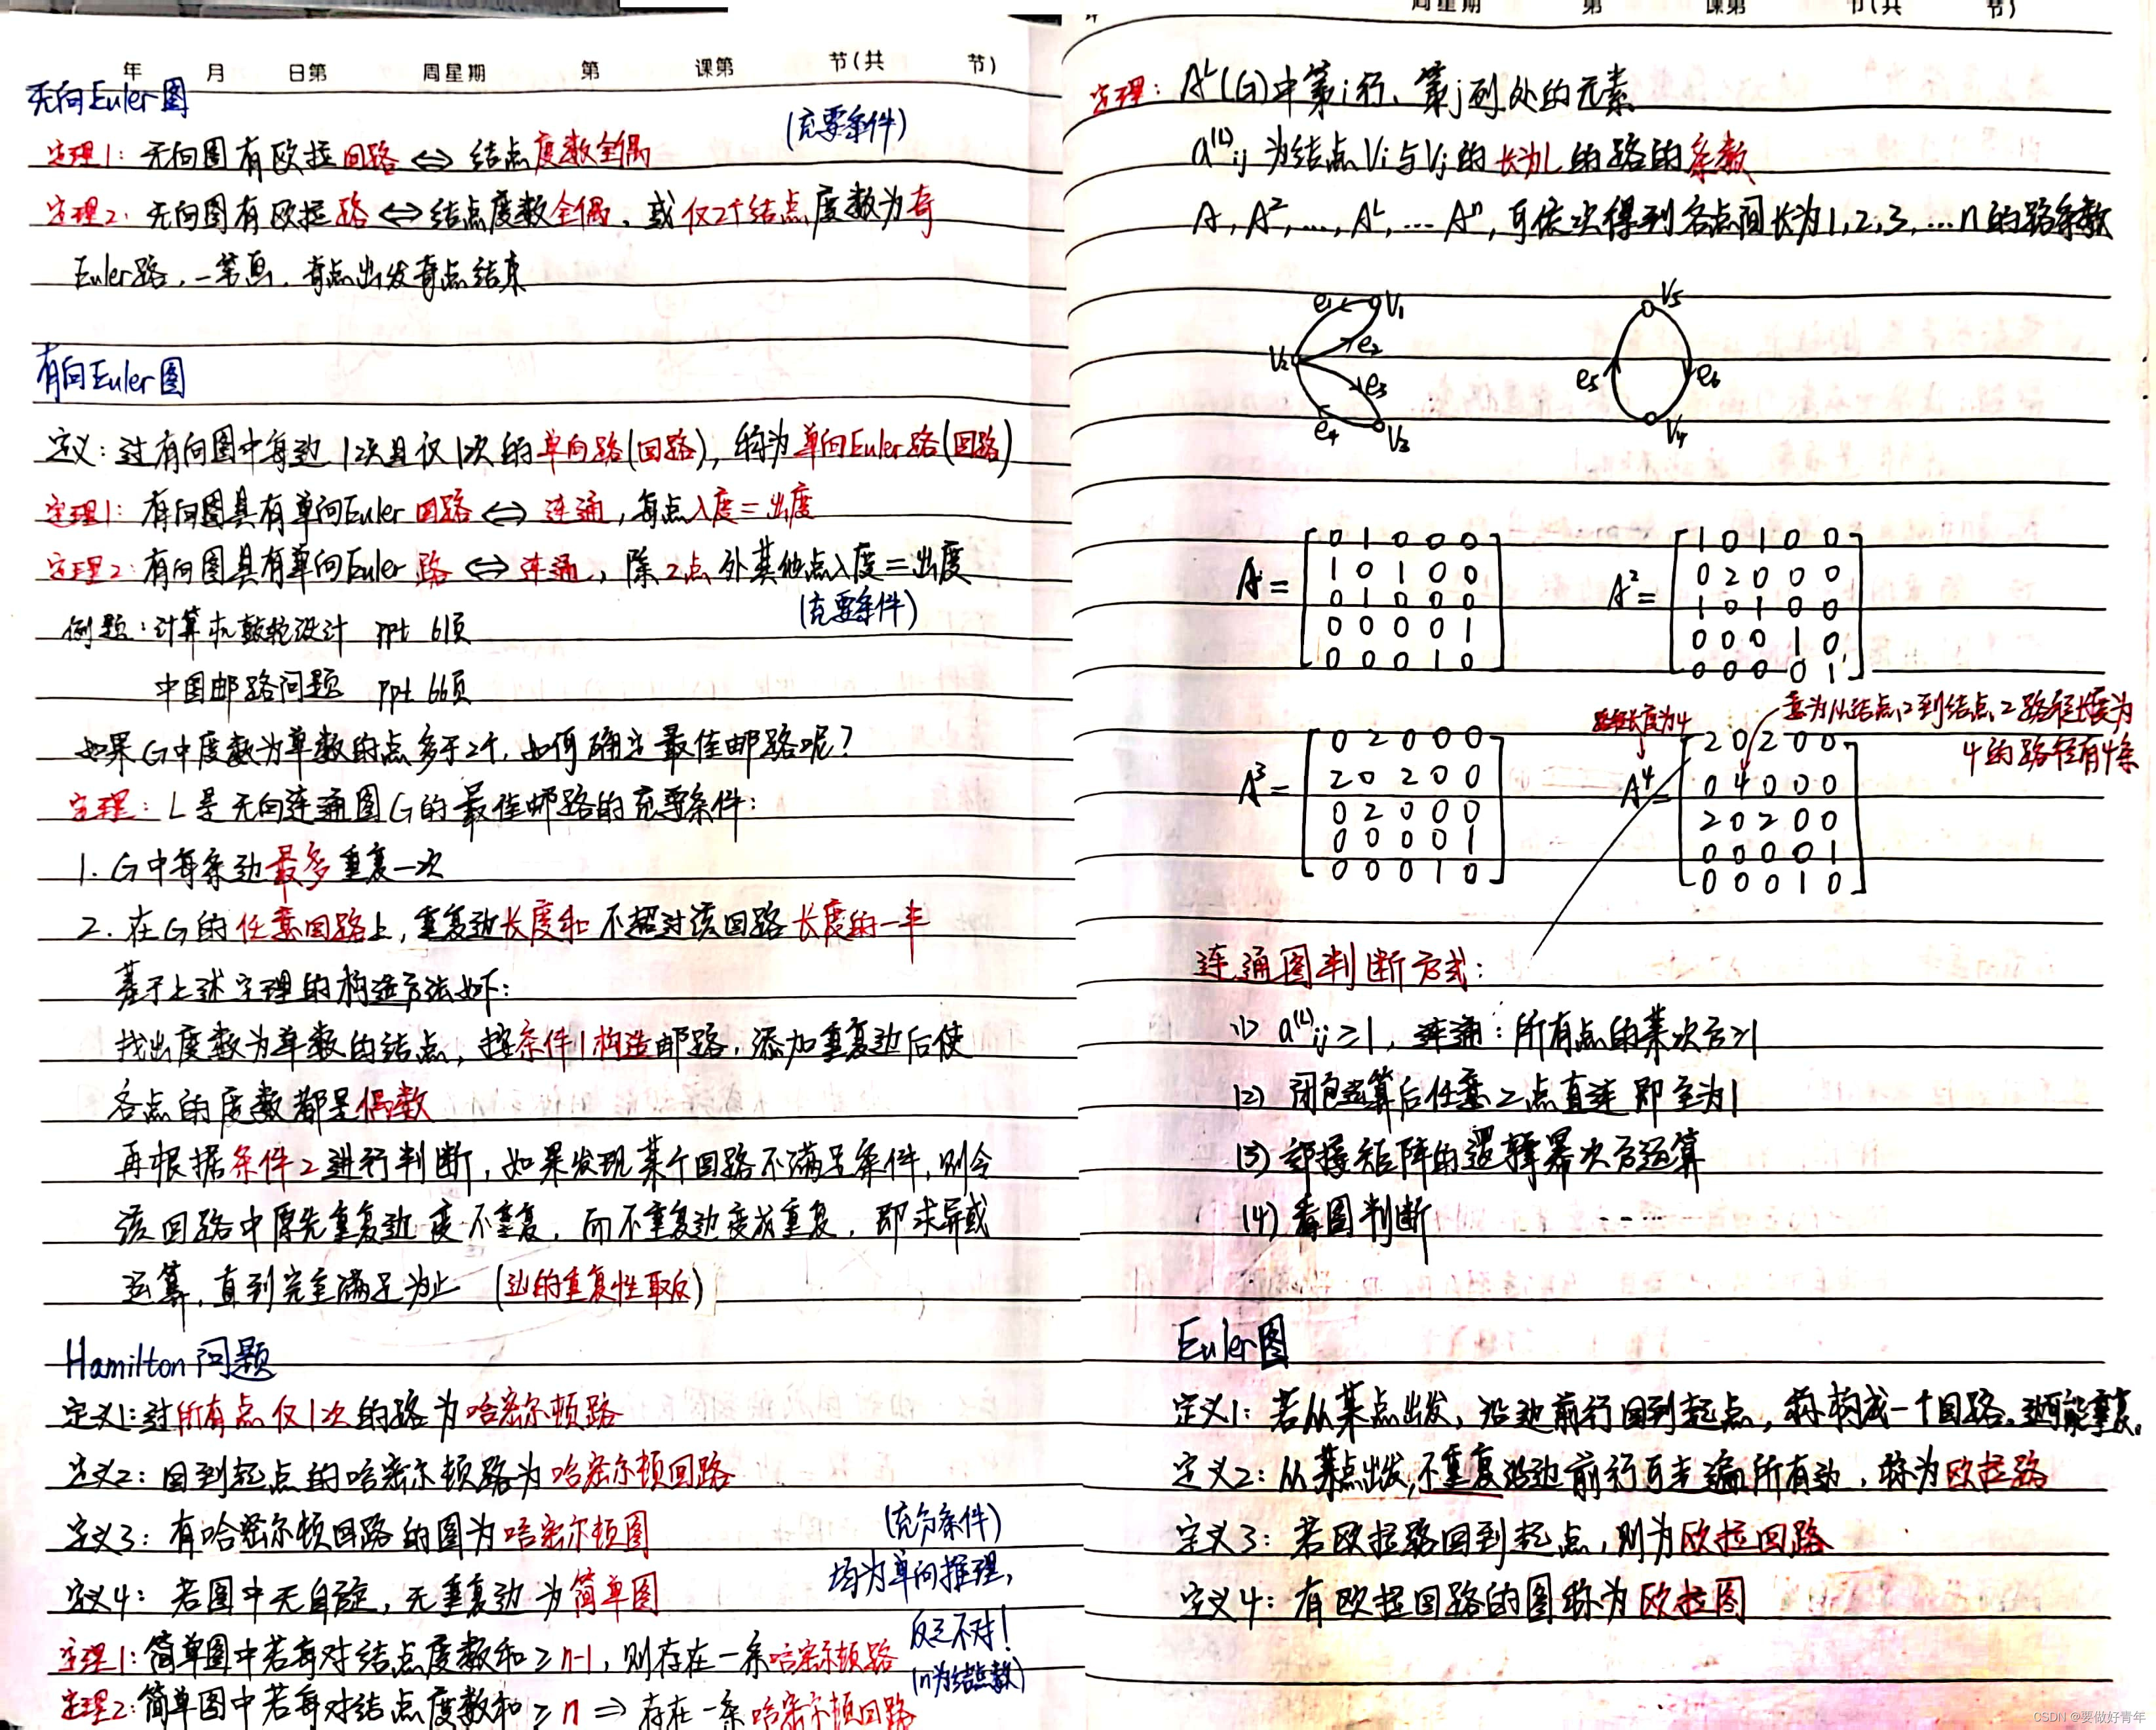 年 月 日第 周星期 第 课第 节(共 节)
无向Euler图
(充要条件)
定理1: 无向图有欧拉回路 ⟺ 结点度数全偶
定理2: 无向图有欧拉路 ⟺ 结点度数全偶, 或仅2个结点度数为奇
Euler路, 一笔画, 奇点出发奇点结束
有向Euler图
定义: 过有向图中每边1次且仅1次的单向路(回路), 称为单向Euler路(回路)
定理1: 有向图具有单向Euler回路 ⟺ 连通, 每点入度=出度
定理2: 有向图具有单向Euler路 ⟺ 连通, 除2点外其他点入度=出度
(充要条件)
例题: 计算机鼓轮设计 ppt 61页
中国邮路问题 ppt 66页
如果G中度数为单数的点多于2个, 如何确定最佳邮路呢?
定理: L是无向连通图G的最佳邮路的充要条件:
1. G中每条边最多重复一次
2. 在G的任意回路上, 重复边长度和不超过该回路长度的一半
基于上述定理的构造方法如下:
找出度数为单数的结点, 按条件1构造邮路, 添加重复边后使
各点的度数都是偶数
再根据条件2进行判断, 如果发现某个回路不满足条件, 则令
该回路中原先重复边变不重复, 而不重复边变成重复, 即求异或
运算, 直到完全满足为止 (边的重复性取反)
Hamilton问题
定义1: 过所有点仅1次的路为哈密尔顿路
定义2: 回到起点的哈密尔顿路为哈密尔顿回路
定义3: 有哈密尔顿回路的图为哈密尔顿图
(充分条件)
定义4: 若图中无自旋, 无重复边为简单图
均为单向推理,
反之不对!
定理1: 简单图中若每对结点度数和≥n-1, 则存在一条哈密尔顿路
(n为结点数)
定理2: 简单图中若每对结点度数和≥n ⟹ 存在一条哈密尔顿回路
周星期 第 课第 节(共 节)
定理: A^L(G)中第i行、第j列处的元素
a^(L)ij 为结点Vi与Vj的长为L的路的条数
A, A², ..., A^L, ... A^n, 可依次得到各点间长为1,2,3,...n的路条数
e1 V1
V2 e2
e3
e4 V3
V5
e5 e6
V4
A=
0 1 0 0 0
1 0 1 0 0
0 1 0 0 0
0 0 0 0 1
0 0 0 1 0
A²=
1 0 1 0 0
0 2 0 0 0
1 0 1 0 0
0 0 0 1 0
0 0 0 0 1
路径长度为4
意为从结点2到结点2路径长度为
4的路径有4条
A³=
0 2 0 0 0
2 0 2 0 0
0 2 0 0 0
0 0 0 0 1
0 0 0 1 0
A⁴=
2 0 2 0 0
0 4 0 0 0
2 0 2 0 0
0 0 0 0 1
0 0 0 1 0
连通图判断方式:
(1) a^(L)ij≥1, 连通: 所有点的某次方≥1
(2) 闭包运算后任意2点直连即全为1
(3) 邻接矩阵的逻辑幂次方运算
(4) 看图判断 ......
Euler图
定义1: 若从某点出发, 沿边前行回到起点, 称构成一个回路. 边可能重复.
定义2: 从某点出发, 不重复沿边前行可走遍所有边, 称为欧拉路
定义3: 若欧拉路回到起点, 则为欧拉回路
定义4: 有欧拉回路的图称为欧拉图
CSDN @要做好青年